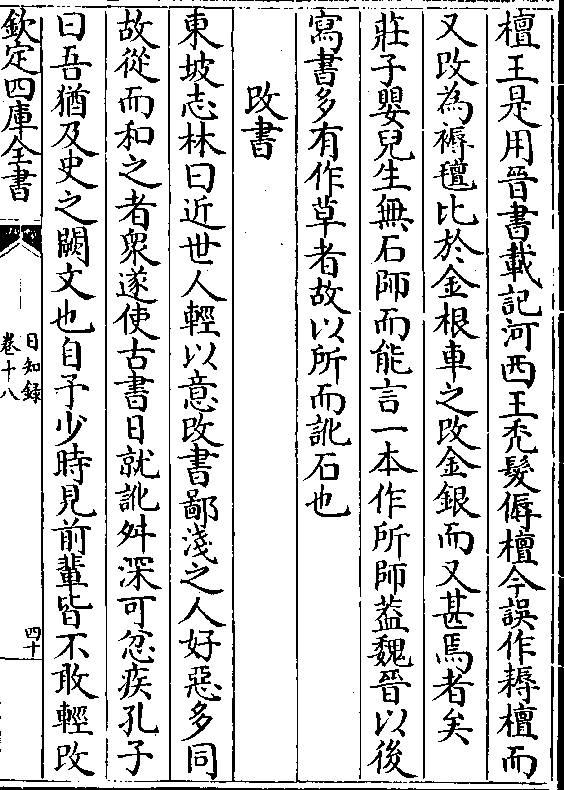 檀王是用晉書載記河西王禿髮傉檀今誤作耨檀而
又改為褥氊比於金根車之改金銀而又甚焉者矣
莊子嬰兒生無石師而能言一本作所師葢魏晉以後
寫書多有作草者故以所而訛石也
改書
東坡志林曰近世人輕以意改書鄙淺之人好惡多同
故從而和之者衆遂使古書日就訛舛深可忿疾孔子
曰吾猶及史之闕文也自予少時見前輩皆不敢輕改
欽定四庫全書
日知錄
卷十八
四十